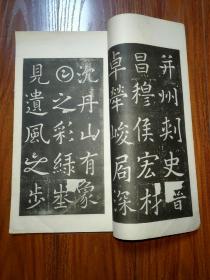 并州刺史晉
昌穆侯宏材
卓犖峻局深
沈丹山有象
之彩綠
見遺風之步